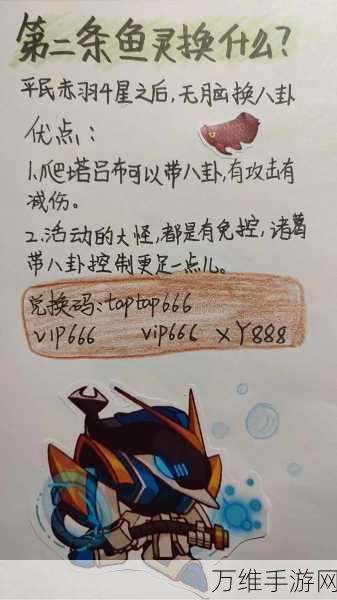 第二条鱼灵换什么?
平民赤羽4星之后,无脑换八卦
优点:
1.爬塔吕布可以带八卦,有攻击有
减伤。
2.活动的大怪,都是有免控,诸葛
带八卦控制更足一点儿。
兑换码:toptop666
VIP666 vip666 XY888
万维手游网